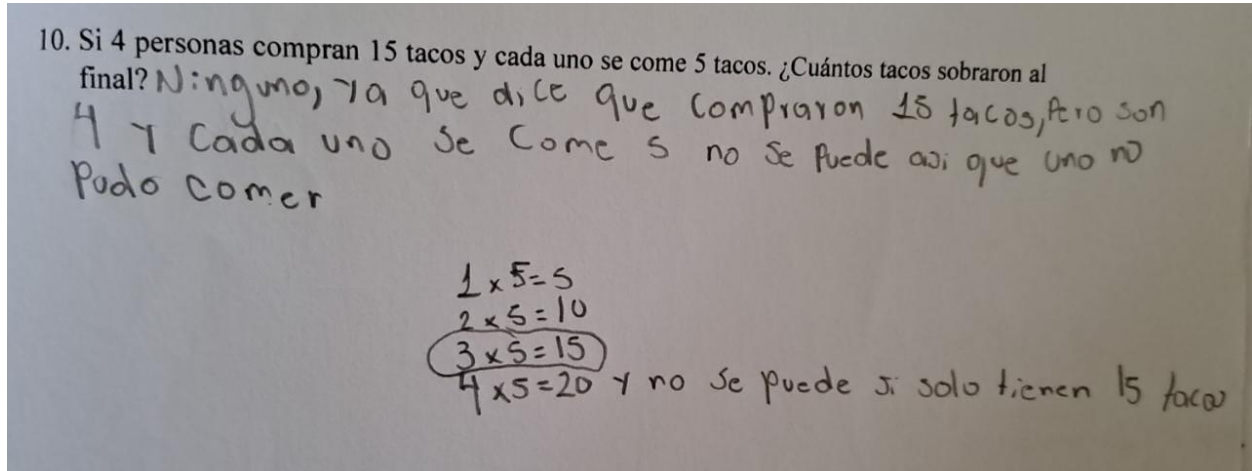 10. Si 4 personas compran 15 tacos y cada uno se come 5 tacos. ¿Cuántos tacos sobraron al
final? Ninguno, ya que dice que compraron 15 tacos, pero son
4 y cada uno se come 5 no se puede asi que uno no
pudo comer
1 x 5 = 5
2 x 5 = 10
3 x 5 = 15
4 x 5 = 20 y no se puede si solo tienen 15 tacos